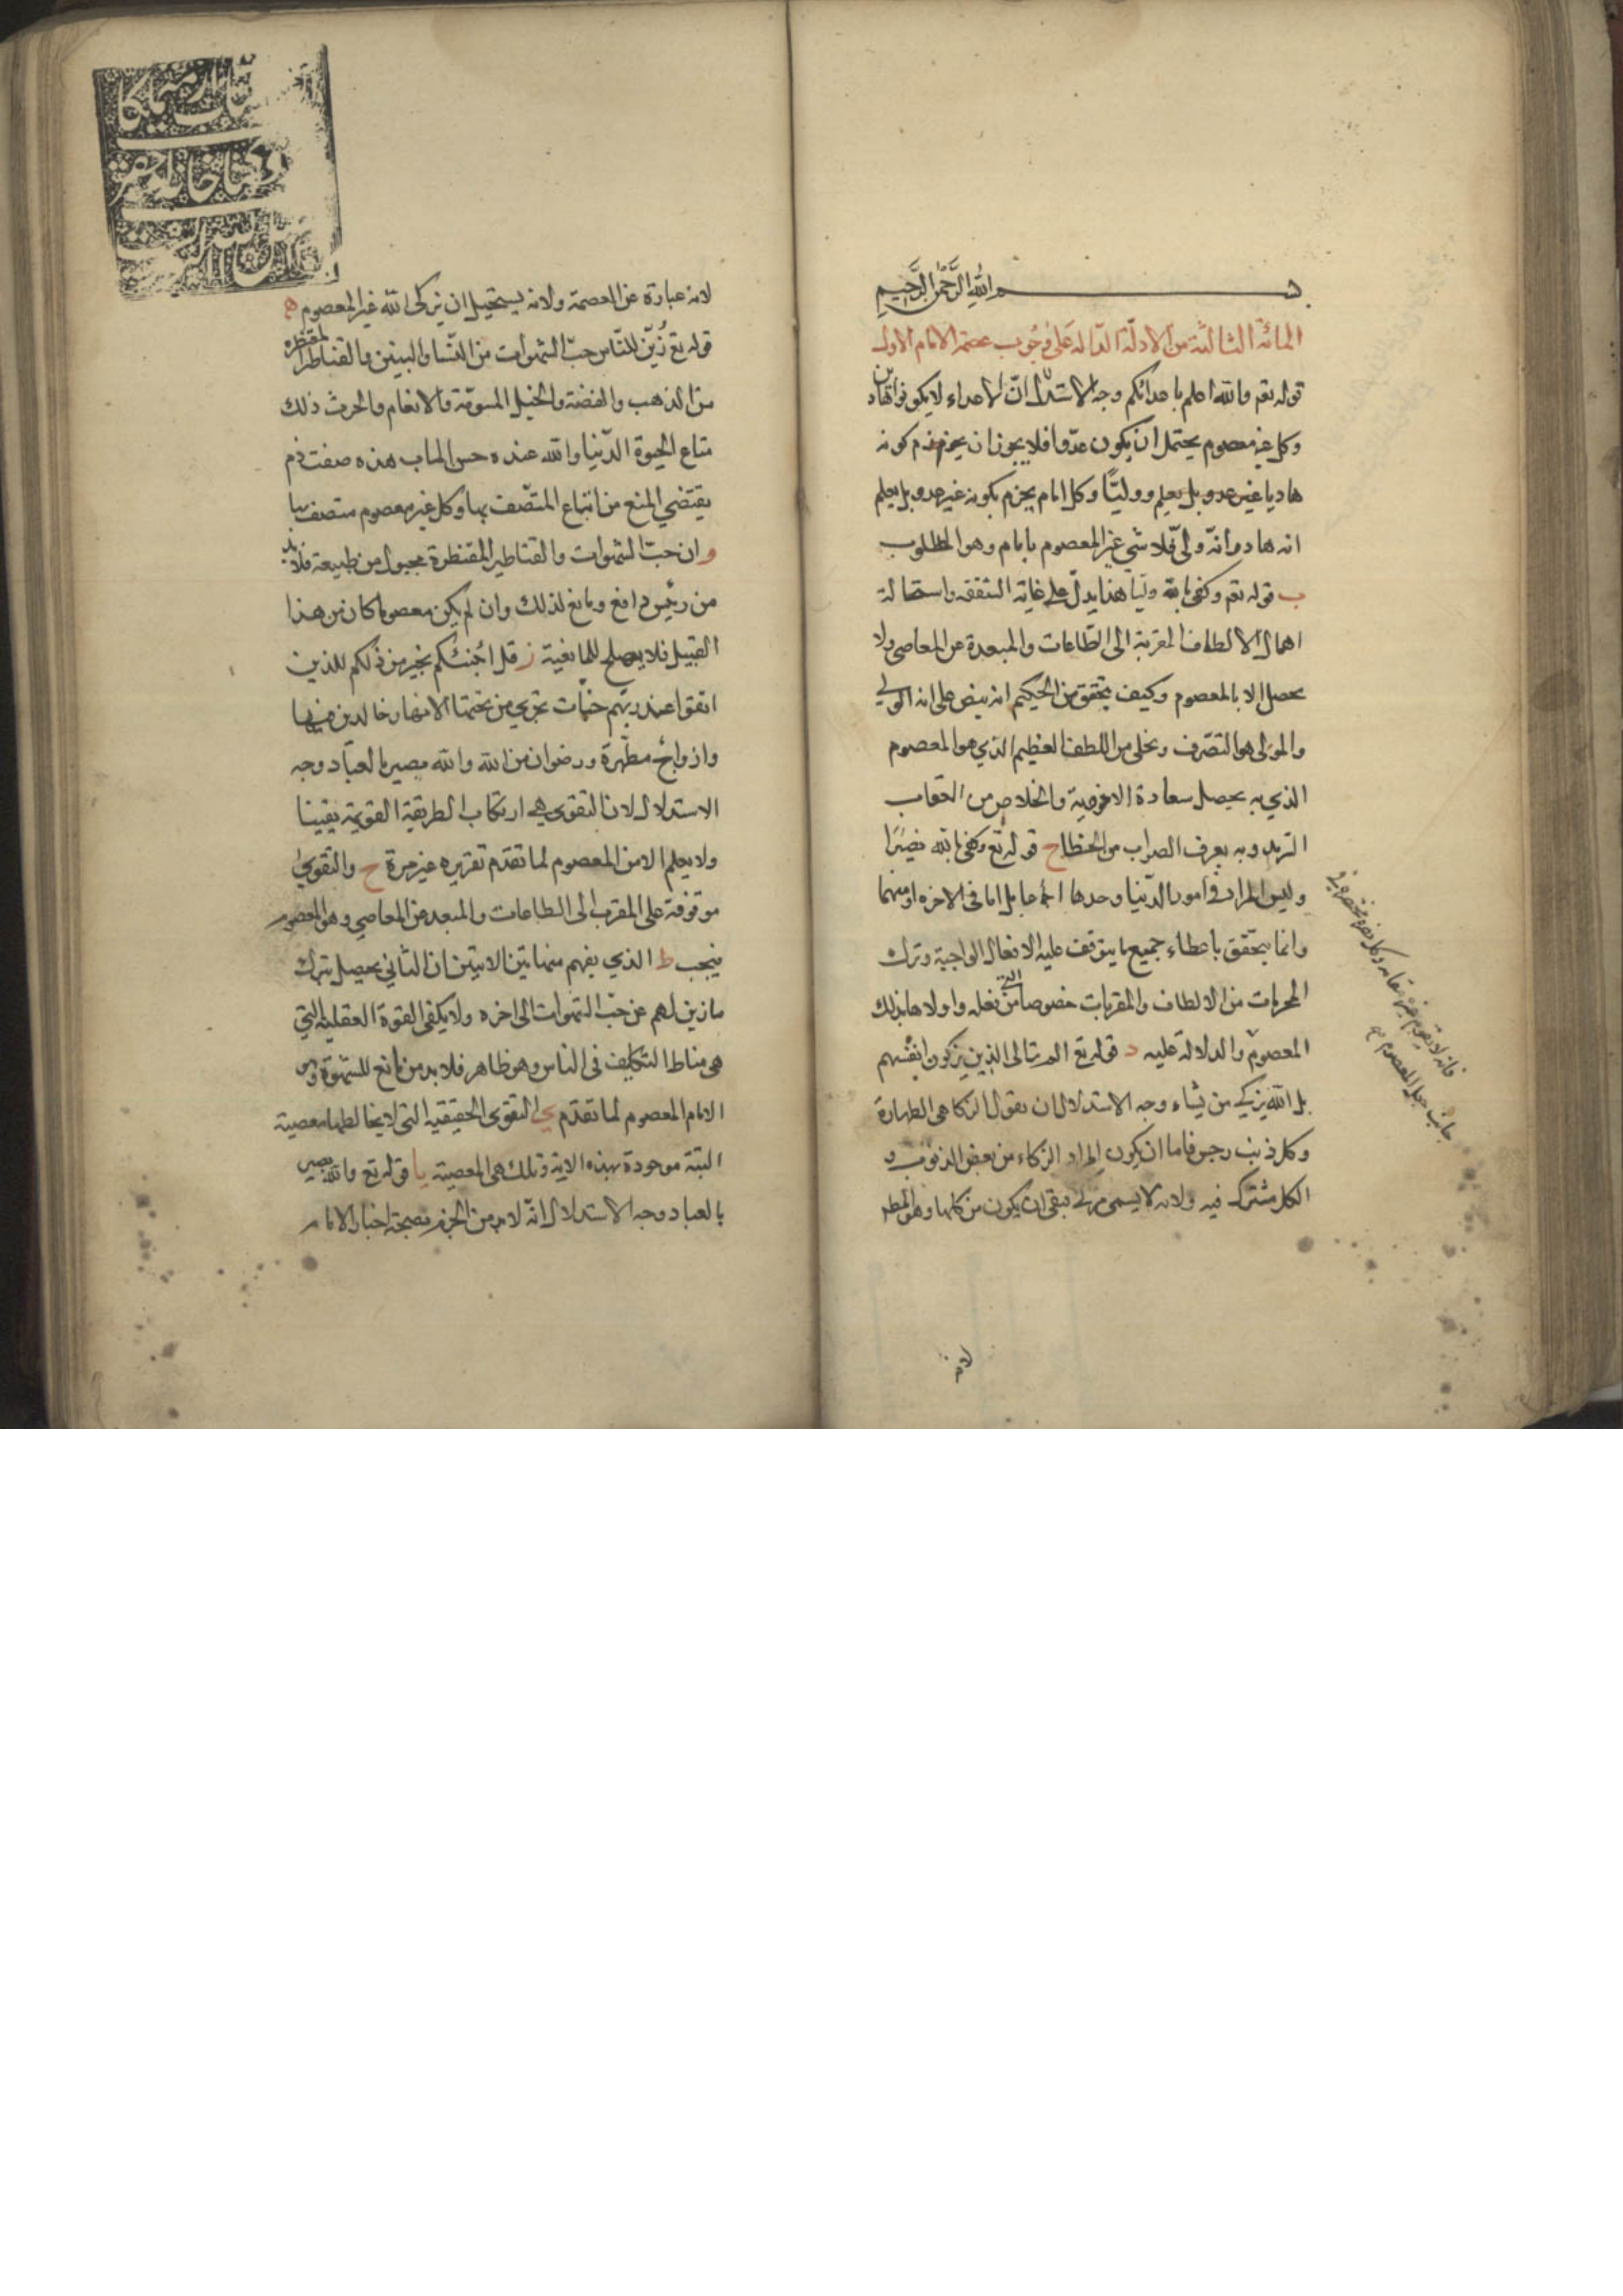 بسم الله الرحمن الرحيم
المائة الثالثة من الادلة الدالة على وجوب عصمة الامام الاول
قوله تعم والله اعلم باعدائكم وجه الاستدلال ان الاعداء لا يكونوا هادين
وكل غير معصوم يحتمل ان يكون عدوا فلا يجوز ان يجزم كونه
هاديا غير عدو بل يعلم ووليا وكل امام يجزم بكونه غير عدو بل يعلم
انه هاد وانه ولي فلا شي غير المعصوم بامام وهو المطلوب
ب قوله تعم وكفى بالله وليا هذا يدل على غاية الشفقة واستحالة
اهمال الالطاف المقربة الى الطاعات والمبعدة عن المعاصي ولا
يحصل الا بالمعصوم وكيف يتحقق من الحكيم انه ينص على انه الولي
والمولى هو التصرف ويخلى من اللطف العظيم الذي هو المعصوم
الذي به يحصل سعادة الاخروية والخلاص من العقاب
وبه يعرف الصواب من الخطا ح قوله تع وكفى بالله نصيرا
وليس المراد في امور الدنيا وحدها بل اما في الاخرة او منهما
وانما يتحقق باعطاء جميع ما يتوقف عليه الافعال الواجبة وترك
المحرمات من الالطاف والمقربات خصوصا التي من فعله واولاها بذلك
المعصوم والدلالة عليه د قوله تع الم تر الى الذين يزكون انفسهم
بل الله يزكي من يشاء وجه الاستدلال ان نقول الزكا هي الطهارة
وكل ذنب رجس فاما ان يكون المراد الزكاء من بعض الذنوب و
الكل مشترك فيه ولانه لا يسمى مزكى فبقي ان يكون من كلها وهو المط
لانه
لانه عبارة عن العصمة ولانه يستحيل ان يزكى الله غير المعصوم ه
قوله تع زين للناس حب الشهوات من النساء والبنين والقناطير المقنطرة
من الذهب والفضة والخيل المسومة والانعام والحرث ذلك
متاع الحيوة الدنيا والله عنده حسن الماب هذه صفت ذم
يقتضي المنع من اتباع المتصف بها وكل غير معصوم متصف بها
و ان حب الشهوات والقناطير المقنطرة مجبول من طبيعة فلا بد
من رئيس دافع ومانع لذلك وان لم يكن معصوما كان من هذا
القبيل فلا يصلح للمانعية ز قل اؤنبئكم بخير من ذلكم للذين
اتقوا عند ربهم جنات تجري من تحتها الانهار خالدين فيها
وازواج مطهرة ورضوان من الله والله بصير بالعباد وجه
الاستدلال لان التقوى هي ارتكاب الطريقة القويمة يقينا
ولا يعلم الا من المعصوم لما تقدم تقريره غير مرة ح والتقوى
موقوفة على المقرب الى الطاعات والمبعد عن المعاصي وهو المعصوم
فيجب ط الذي يفهم من هاتين الايتين ان الثاني يحصل بترك
ما زين لهم عن حب الشهوات الى اخره ولا يكفى القوة العقلية التي
هي مناط التكليف في الناس وهو ظاهر فلا بد من مانع للشهوة وليس
الامام المعصوم لما تقدم ي التقوى الحقيقية التي لا يخالطها معصية
البتة موجودة بهذه الاية وتلك هي المعصية يا قوله تع والله بصير
بالعباد وجه الاستدلال انه لا بد من الجزم بصحة اخبار الامام